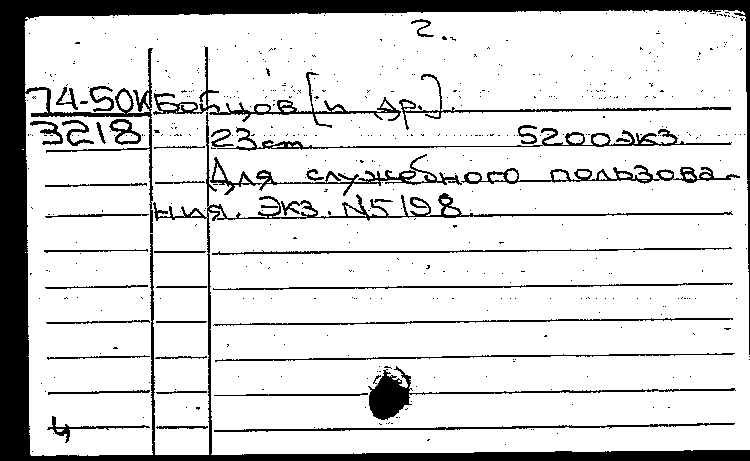 2.
74-50К Бобцов [и др.].
3218 23 cm. 5200 экз.
Для служебного пользова-
ния. Экз. N5198.
4